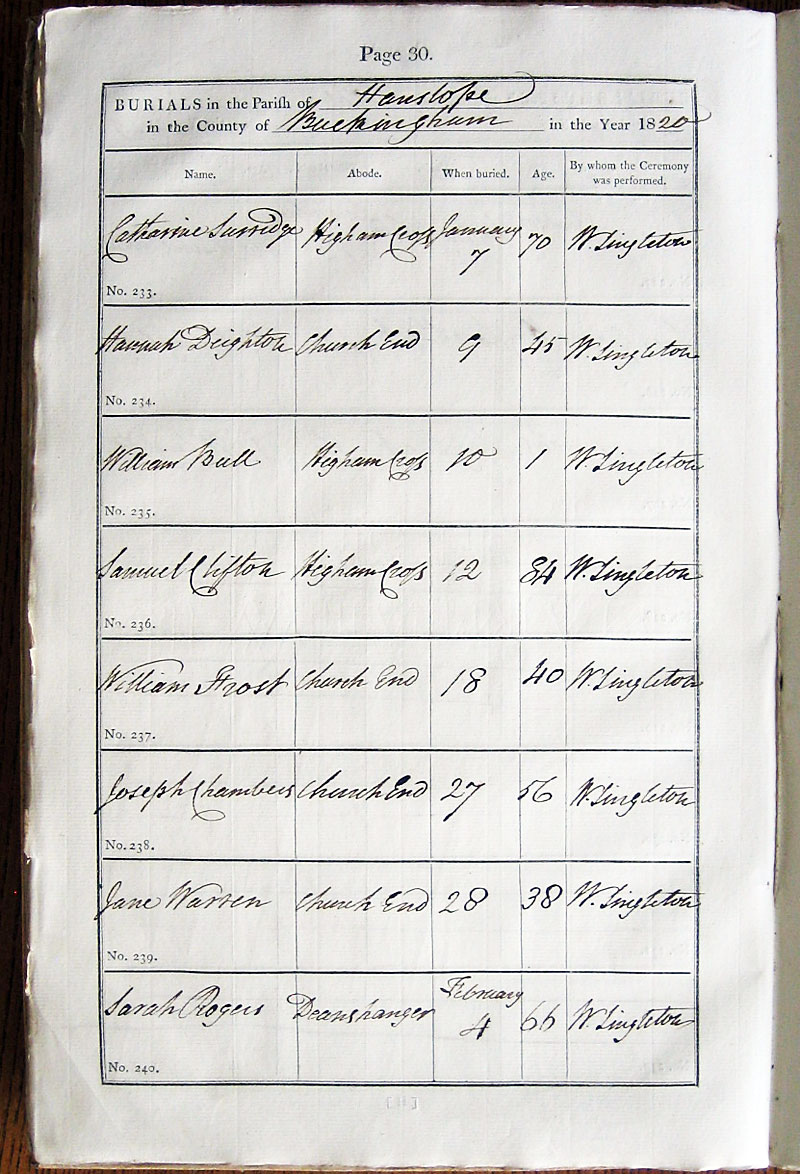 Page 30.
BURIALS in the Parish of Hanslope
in the County of Buckingham in the Year 1820
Name. Abode. When buried. Age. By whom the Ceremony was performed.
Catharine Surridge Higham Cross January 7 70 W. Singleton
No. 233.
Hannah Deighton Church End 9 45 W. Singleton
No. 234.
William Bull Higham Cross 10 1 W. Singleton
No. 235.
Samuel Clifton Higham Cross 12 84 W. Singleton
No. 236.
William Frost Church End 18 40 W. Singleton
No. 237.
Joseph Chambers Church End 27 56 W. Singleton
No. 238.
Jane Warren Church End 28 38 W. Singleton
No. 239.
Sarah Rogers Deanshanger February 4 66 W. Singleton
No. 240.